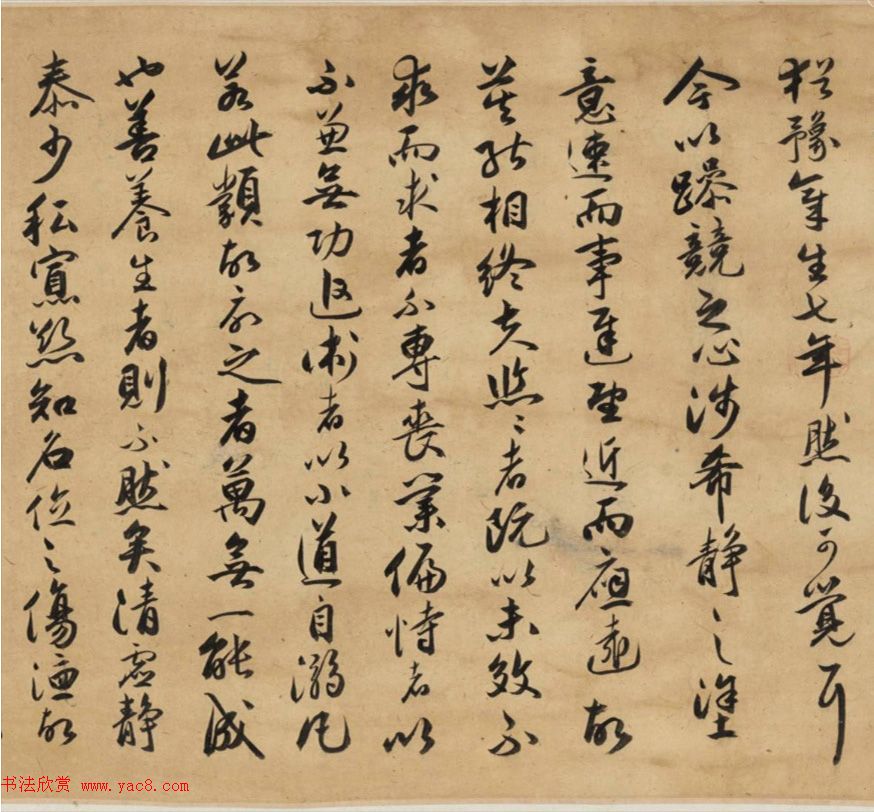 猶豫章生七年然後可覺耳
今以躁競之心涉希靜之塗
意速而事遲望近而應遠故
莫能相終夫悠〻者既以未效不
求而求者不專喪業偏恃者以
不兼無功追術者以小道自溺凡
若此類故欲之者萬無一能成
也善養生者則不然矣清虛靜
泰少私寡欲知名位之傷德故
书法欣赏 www.yac8.com